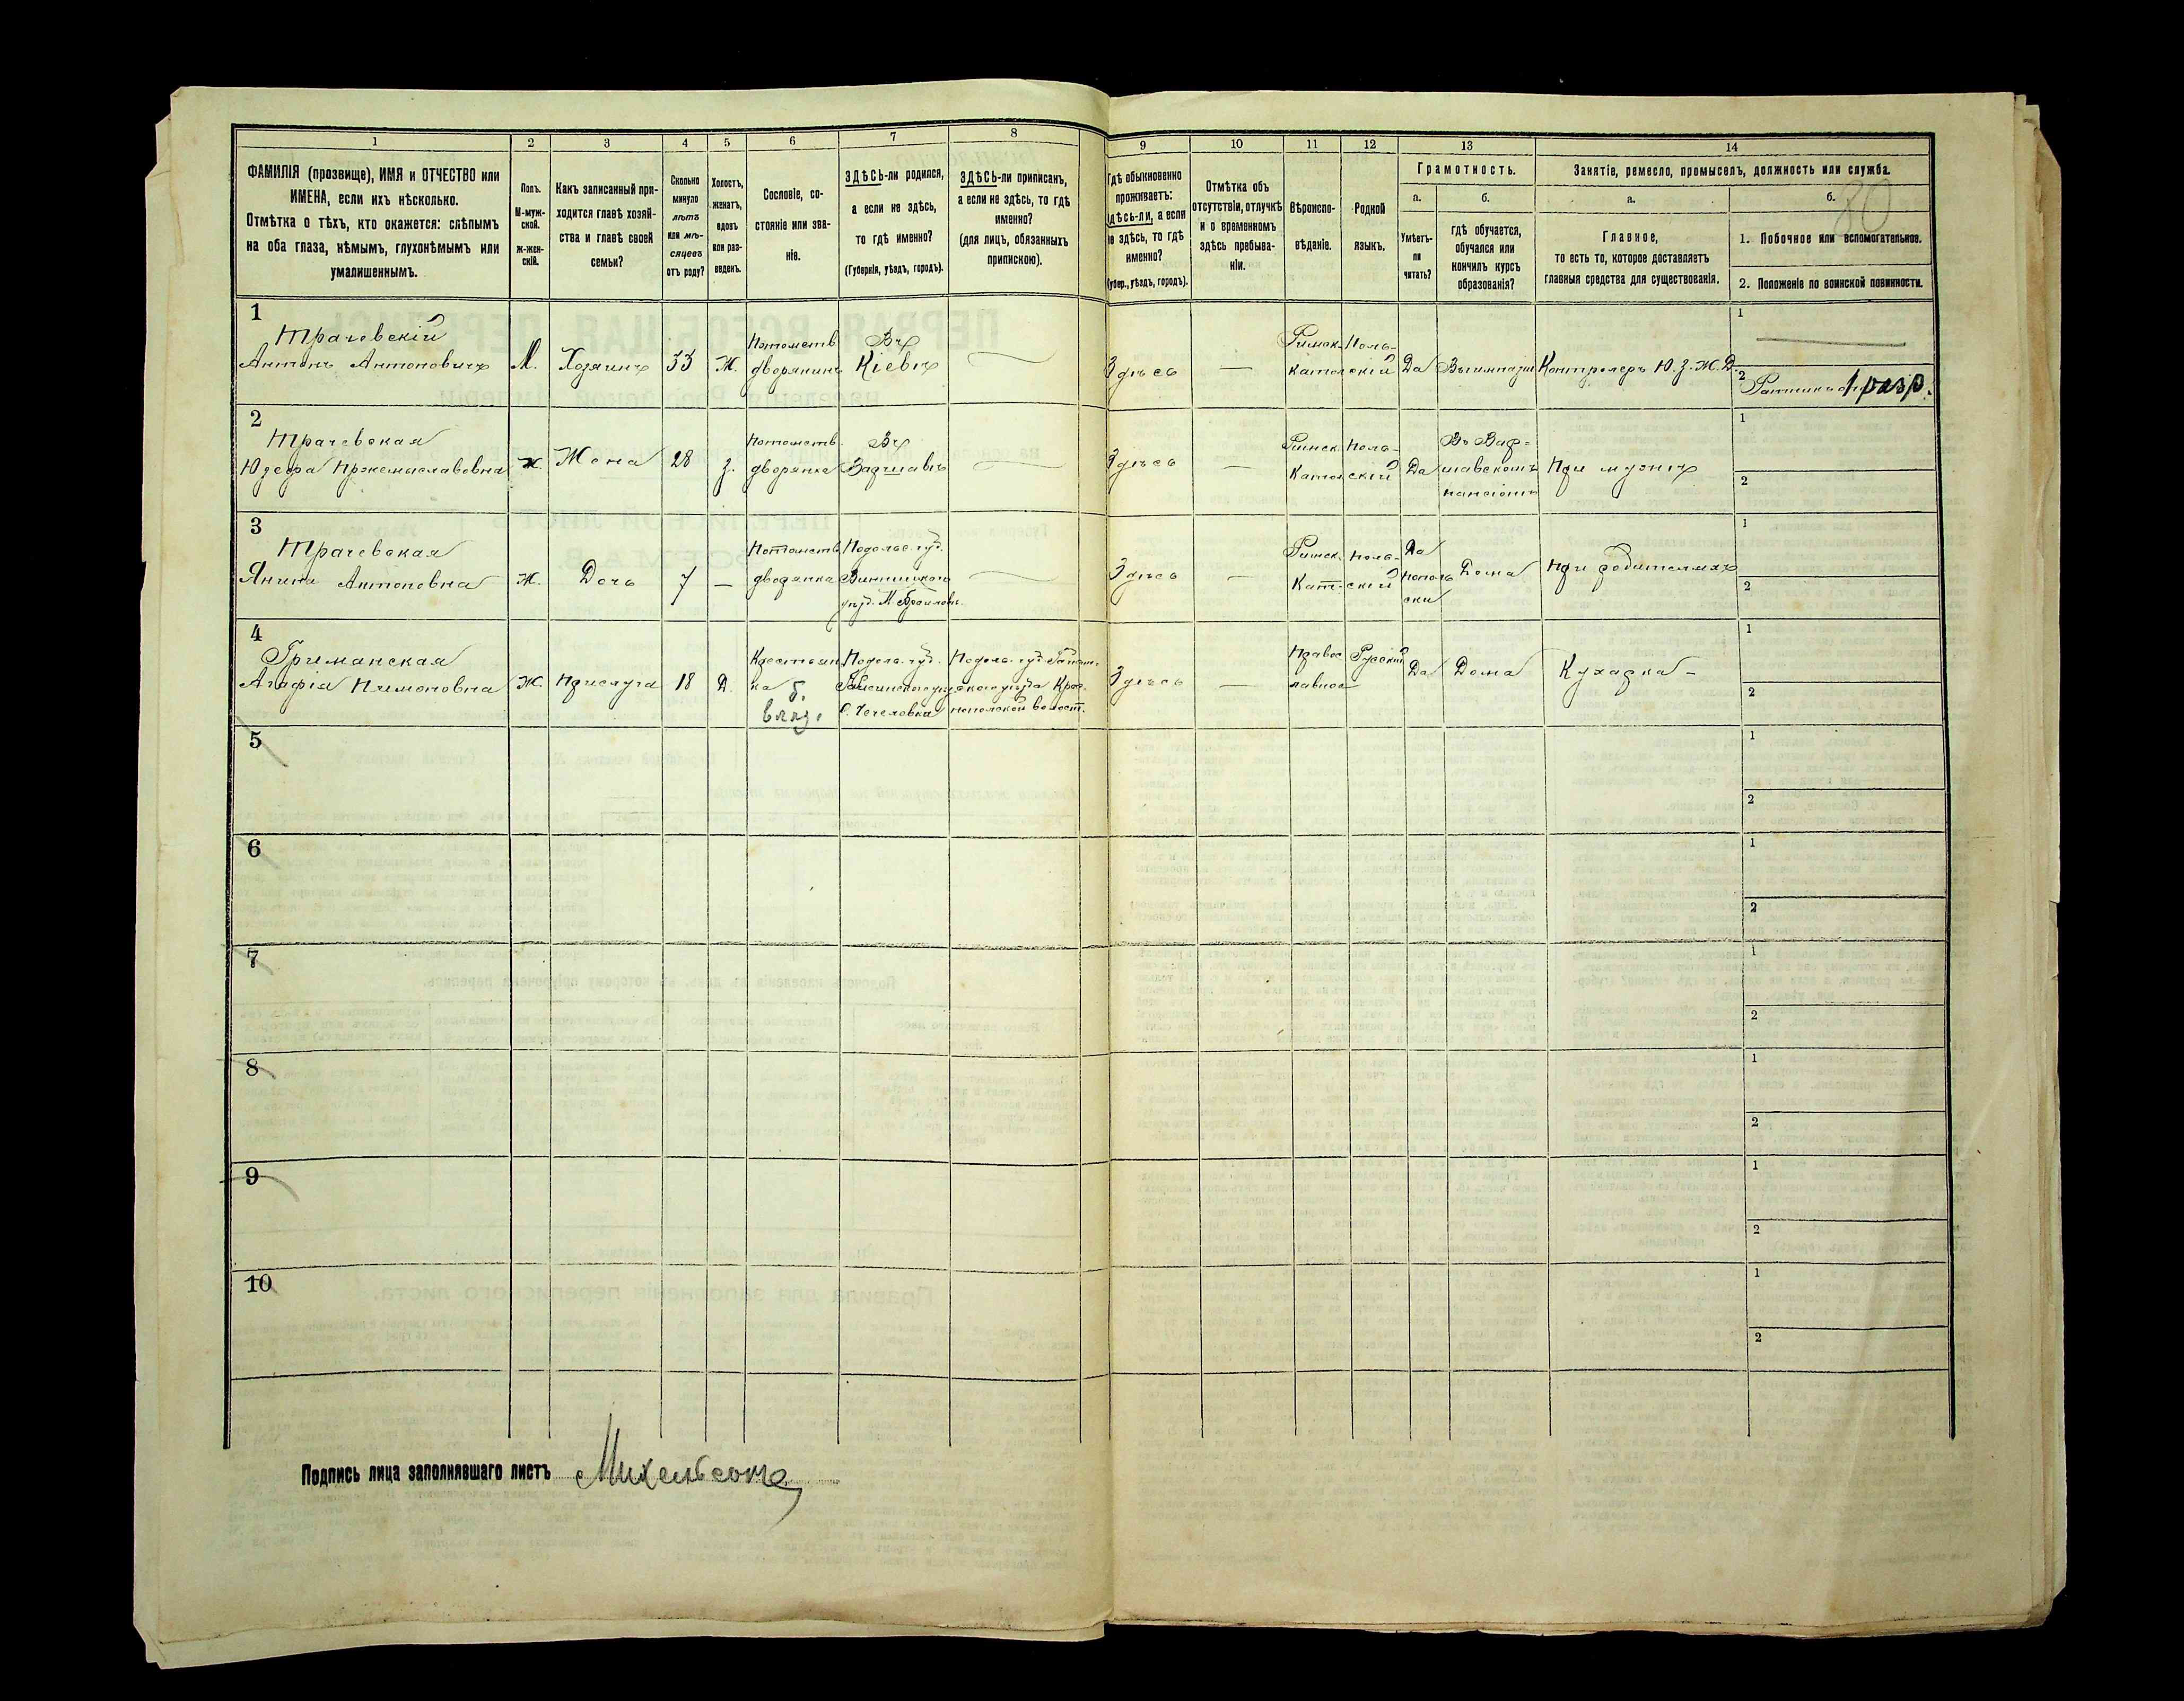 1 2 3 4 5 6 7 8 9 10 11 12 13 14
ФАМИЛІЯ (прозвище), ИМЯ и ОТЧЕСТВО или
ИМЕНА, если ихъ нѣсколько.
Отмѣтка о тѣхъ, кто окажется: слѣпымъ
на оба глаза, нѣмымъ, глухонѣмымъ или
умалишеннымъ.
Полъ.
М-муж-
ской.
ж-жен-
скій.
Какъ записанный при-
ходится главѣ хозяй-
ства и главѣ своей
семьи?
Сколько
минуло
лѣтъ
или мѣ-
сяцевъ
отъ роду?
Холостъ,
женатъ,
вдовъ
или раз-
веденъ.
Сословіе, со-
стояніе или зва-
ніе.
ЗДѢСЬ-ли родился,
а если не здѣсь,
то гдѣ именно?
(Губернія, уѣздъ, городъ).
ЗДѢСЬ-ли приписанъ,
а если не здѣсь, то гдѣ
именно?
(для лицъ, обязанныхъ
припискою).
Гдѣ обыкновенно
проживаетъ:
здѣсь-ли, а если
не здѣсь, то гдѣ
именно?
(Губер., уѣздъ, городъ).
Отмѣтка объ
отсутствіи, отлучкѣ
и о временномъ
здѣсь пребыва-
ніи.
Вѣроиспо-
вѣданіе.
Родной
языкъ.
Грамотность.
а.
Умѣетъ-
ли
читать?
б.
гдѣ обучается,
обучался или
кончилъ курсъ
образованія?
Занятіе, ремесло, промыселъ, должность или служба.
а.
Главное,
то есть то, которое доставляетъ
главныя средства для существованія.
б.
80
1. Побочное или вспомогательное.
2. Положеніе по воинской повинности.
1
Трачевскій
Антонъ Антоновичъ
М.
Хозяинъ
33
Ж.
Потомств
дворянинъ
Въ
Кіевѣ
Здѣсь
Римск-
катол
Поль-
скій
Да
Въ гимназіи
Контролеръ Ю. З. Ж. Д.
1
2
Ратникъ 1 разр.
2
Трачевская
Юзефа Пржемыславовна
Ж.
Жена
28
З.
Потомств.
дворянка
Въ
Варшавѣ
Здѣсь
Римск
Катол
Поль-
скій
Да
Въ Вар-
шавскомъ
пансіонѣ
При мужѣ
1
2
3
Трачевская
Янина Антоновна
Ж.
Дочь
7
Потомств
дворянка
Подольс. губ.
Винницкого
уѣзд. М. Браиловъ
Здѣсь
Римск
Кат.
Поль-
скій
Да
пополь
ски
Дома
При родителяхъ
1
2
4
Гриманская
Агафія Пимоновна
Ж.
Прислуга
18
Д.
Крестьян
ка б.
влад.
Подоль. губ.
С. Чечеловка
Подоль. губ. Гайсин-
скаго уѣзда Крас-
нопольской волост.
Здѣсь
Правос
лавное
Русскій
Да
Дома
Кухарка
1
2
5
1
2
6
1
2
7
1
2
8
1
2
9
1
2
10
1
2
Подпись лица заполнявшаго листъ Михельсонъ